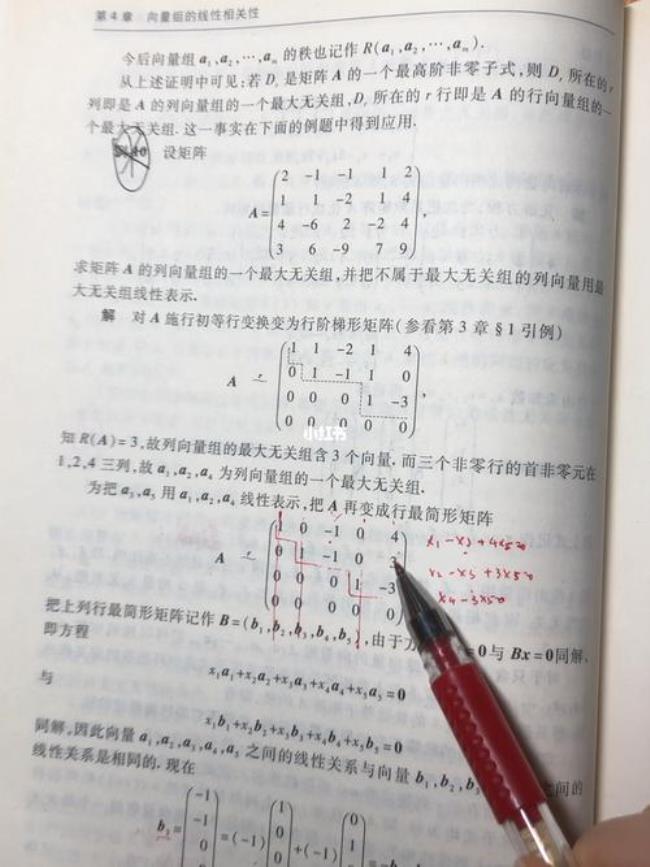 第4章 向量组的线性相关性
今后向量组 a₁,a₂,⋯,aₘ 的秩也记作 R(a₁,a₂,⋯,aₘ).
从上述证明中可见:若 Dᵣ 是矩阵 A 的一个最高阶非零子式,则 Dᵣ 所在的 r
列即是 A 的列向量组的一个最大无关组,Dᵣ 所在的 r 行即是 A 的行向量组的一
个最大无关组.这一事实在下面的例题中得到应用.
设矩阵
2 -1 -1 1 2
1 1 -2 1 4
A=
4 -6 2 -2 4
3 6 -9 7 9
,
求矩阵 A 的列向量组的一个最大无关组,并把不属于最大无关组的列向量用最
大无关组线性表示.
解 对 A 施行初等行变换变为行阶梯形矩阵(参看第 3 章 §1 引例)
1 1 -2 1 4
0 1 -1 1 0
A r
0 0 0 1 -3
0 0 0 0 0
,
小红书
知 R(A)=3,故列向量组的最大无关组含 3 个向量.而三个非零行的首非零元在
1,2,4 三列,故 a₁,a₂,a₄ 为列向量组的一个最大无关组.
为把 a₃,a₅ 用 a₁,a₂,a₄ 线性表示,把 A 再变成行最简形矩阵
1 0 -1 0 4
x₁-x₃+4x₅=0
0 1 -1 0 3
x₂-x₃+3x₅=0
A r
0 0 0 1 -3
x₄-3x₅=0
0 0 0 0 0
把上列行最简形矩阵记作 B=(b₁,b₂,b₃,b₄,b₅),由于方 =0与 Bx=0同解,
即方程
x₁a₁+x₂a₂+x₃a₃+x₄a₄+x₅a₅=0
与
x₁b₁+x₂b₂+x₃b₃+x₄b₄+x₅b₅=0
同解,因此向量 a₁,a₂,a₃,a₄,a₅ 之间的线性关系与向量 b₁,b₂,b₃ 之间的
线性关系是相同的.现在
-1 1 0
-1 0 1
b₃= =(-1) +(-1)
0 0 0